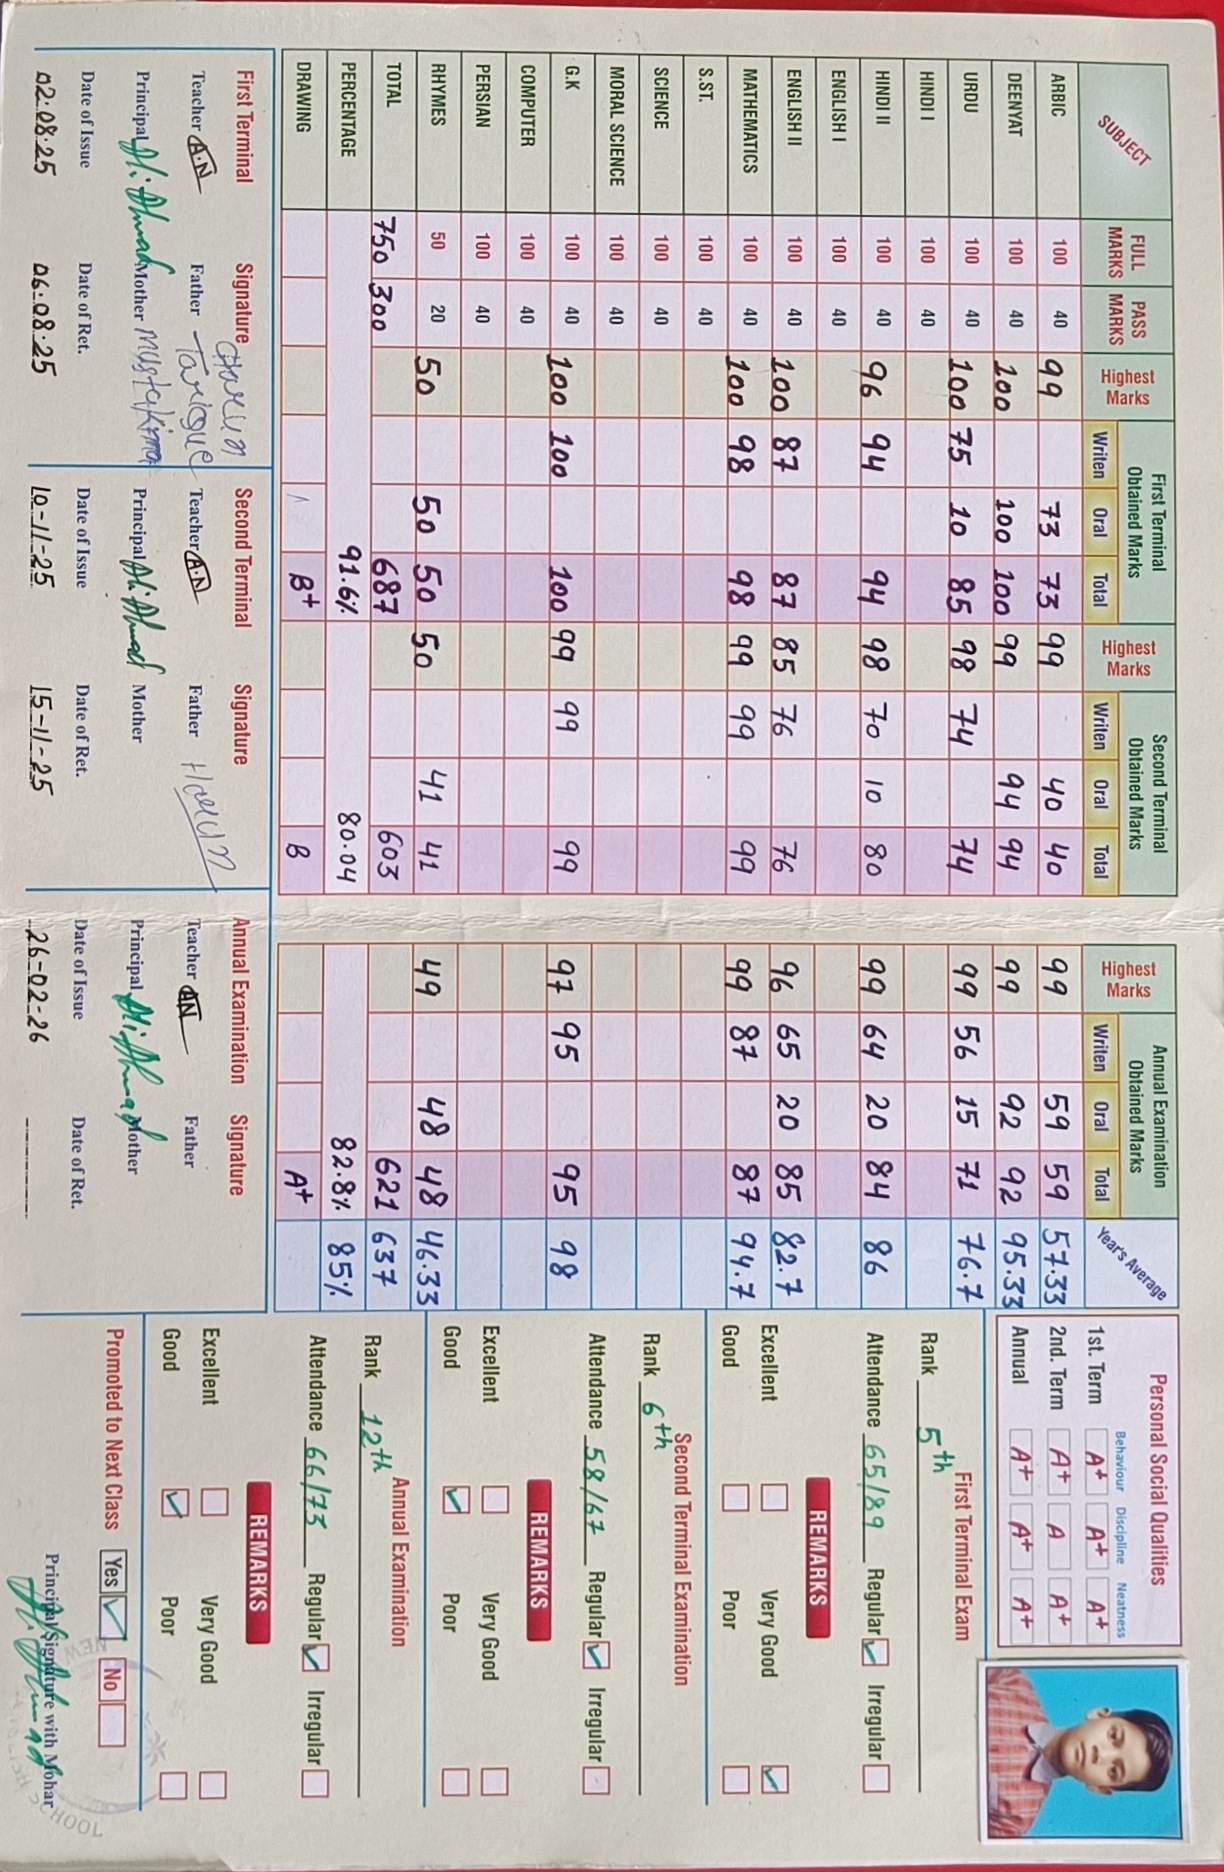 SUBJECT FULL MARKS PASS MARKS Highest Marks First Terminal Obtained Marks Writen Oral Total Highest Marks Second Terminal Obtained Marks Writen Oral Total Highest Marks Annual Examination Obtained Marks Writen Oral Total Year's Average
ARBIC 100 40 99 73 73 99 40 40 99 59 59 57.33
DEENYAT 100 40 100 100 100 99 94 94 99 92 92 95.33
URDU 100 40 100 75 10 85 98 74 74 99 56 15 71 76.7
HINDI I 100 40
HINDI II 100 40 96 94 94 98 70 10 80 99 64 20 84 86
ENGLISH I 100 40
ENGLISH II 100 40 100 87 87 85 76 76 96 65 20 85 82.7
MATHEMATICS 100 40 100 98 98 99 99 99 99 87 87 94.7
S.ST. 100 40
SCIENCE 100 40
MORAL SCIENCE 100 40
G.K 100 40 100 100 100 99 99 99 97 95 95 98
COMPUTER 100 40
PERSIAN 100 40
RHYMES 50 20 50 50 50 50 41 41 49 48 48 46.33
TOTAL 750 300 687 603 621 637
PERCENTAGE 91.6% 80.04 82.8% 85%
DRAWING B+ B A+
First Terminal Signature
Teacher A.N Father Tarique
Principal Ali Ahmad Mother Mustakima
Date of Issue Date of Ret.
02.08.25 06.08.25
Second Terminal Signature
Teacher A.N Father
Principal Ali Ahmad Mother
Date of Issue Date of Ret.
10-11-25 15-11-25
Annual Examination Signature
Teacher AN Father
Principal Ali Ahmad Mother
Date of Issue Date of Ret.
26-02-26
Personal Social Qualities
Behaviour Discipline Neatness
1st. Term A+ A+ A+
2nd. Term A+ A A+
Annual A+ A+ A+
First Terminal Exam
Rank 5th
Attendance 65/89 Regular Irregular
REMARKS
Excellent Very Good
Good Poor
Second Terminal Examination
Rank 6th
Attendance 58/67 Regular Irregular
REMARKS
Excellent Very Good
Good Poor
Annual Examination
Rank 12th
Attendance 66/73 Regular Irregular
REMARKS
Excellent Very Good
Good Poor
Promoted to Next Class Yes No
Principal Signature with Mohar
Ali Ahmad
NEW